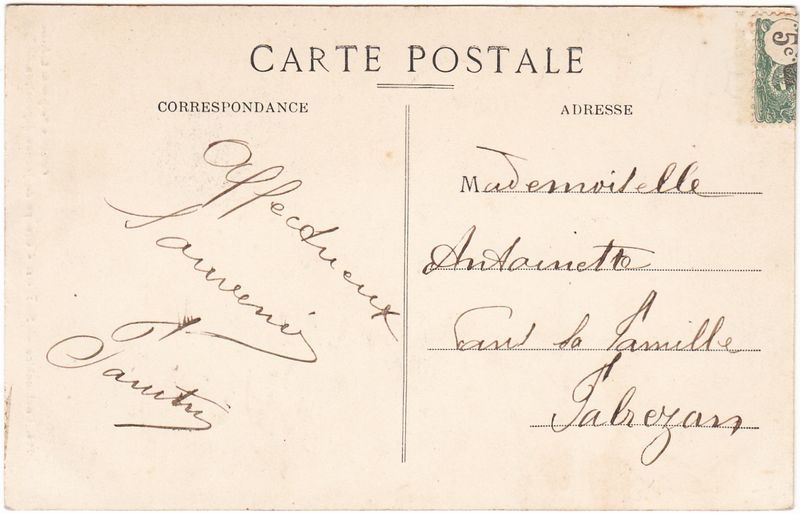 CARTE POSTALE
CORRESPONDANCE
ADRESSE
5c
Affectueux
Souvenir
Mademoiselle
Antoinette
dans sa famille
Fabrezan